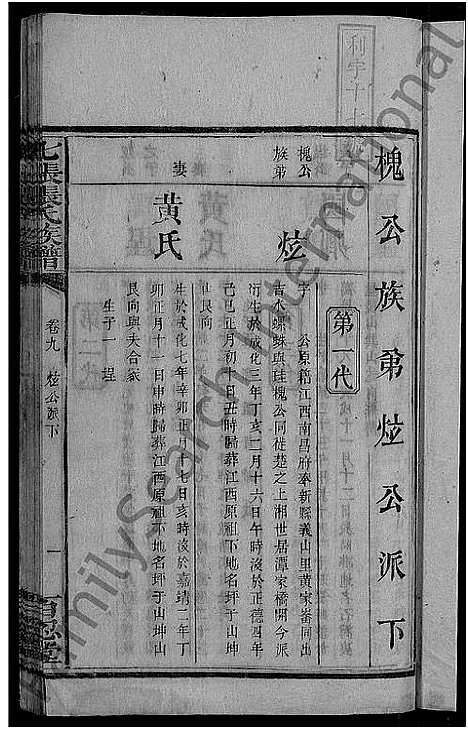 槐公族弟炫公派下
第一代
槐公
族弟
炫
字 公原籍江西南昌府奉新縣義山里黃家畬同出
吉水螺螄與珪槐公同徙楚之上湘世居潭家橋開今派
衍生於成化三年丁亥二月十六日午時沒於正德四年
己巳正月初十日丑時歸葬江西原祖下地名坪于山坤山
艮向
妻
黃氏
生於成化七年辛卯正月十七日亥時沒於嘉靖二年丁
卯正月十一日申時歸葬江西原祖下地名坪于山坤山
艮向與夫合塚
生子一 埕
七張張氏族譜
卷九 炫公派下
一
百忍堂
FamilySearch International